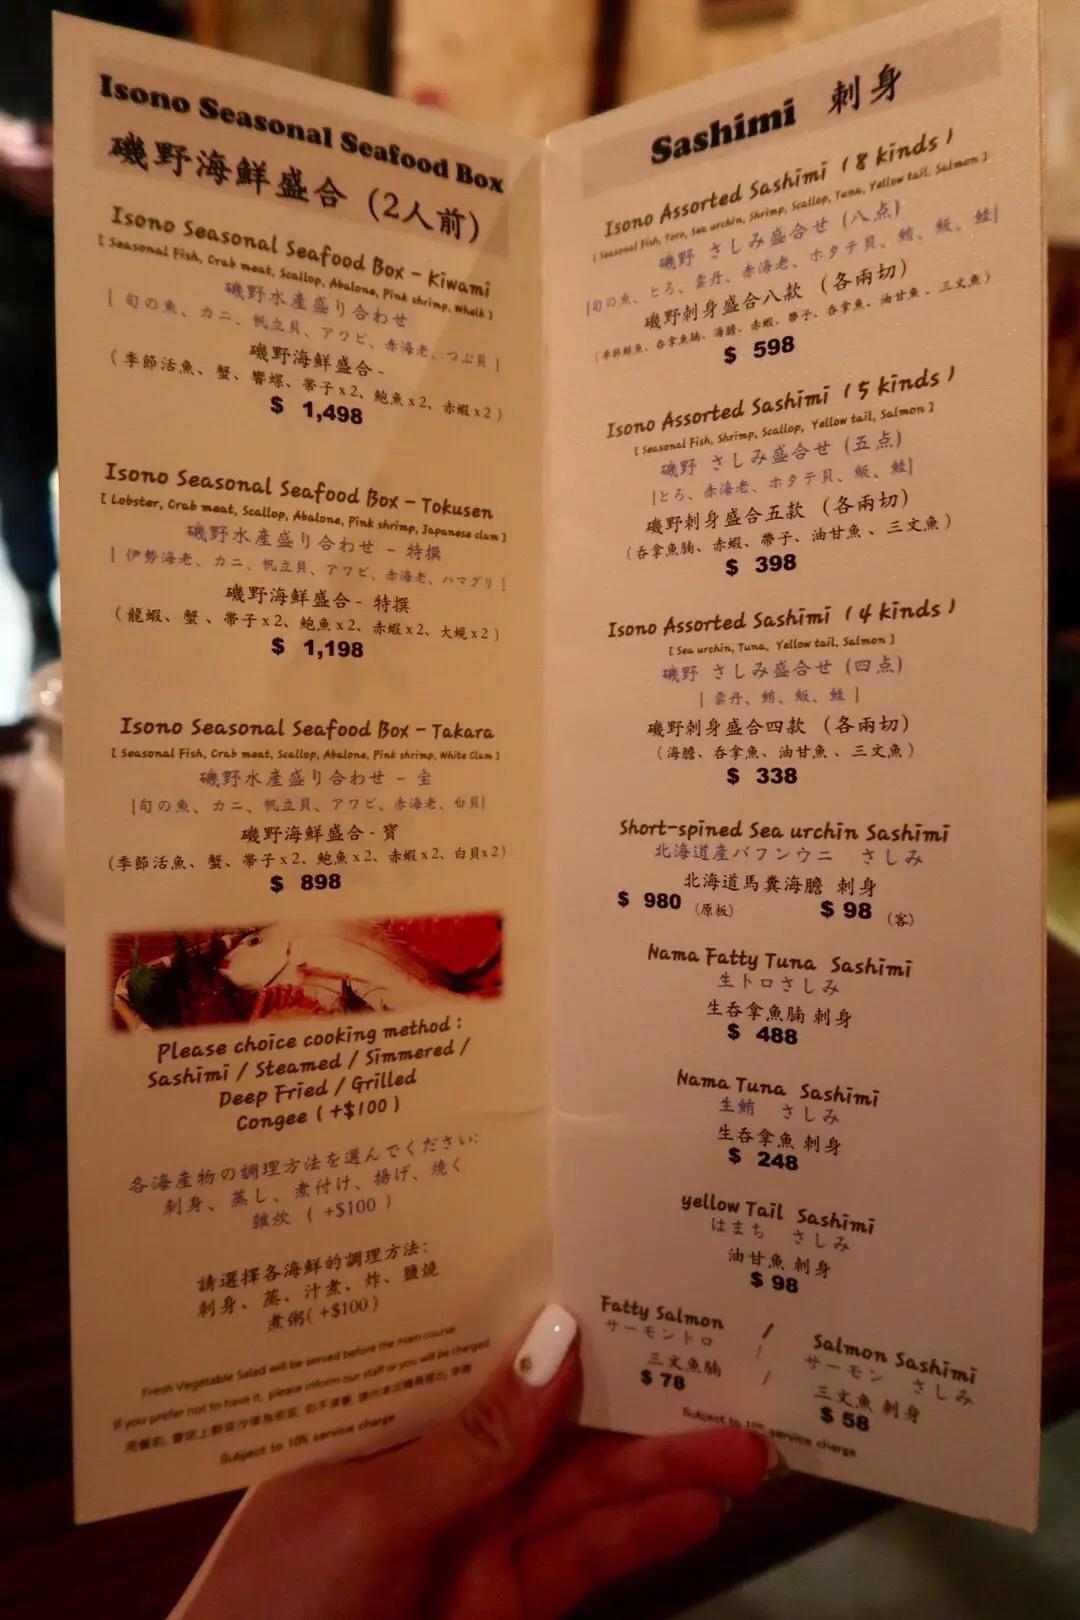 Isono Seasonal Seafood Box
磯野海鮮盛合 (2人前)
Isono Seasonal Seafood Box - Kiwami
[ Seasonal Fish, Crab meat, Scallop, Abalone, Pink shrimp, Whelk ]
磯野水産盛り合わせ
| 旬の魚、カニ、帆立貝、アワビ、赤海老、つぶ貝 |
磯野海鮮盛合 -
(季節活魚、蟹、響螺、帶子x2、鮑魚x2、赤蝦x2)
$ 1,498
Isono Seasonal Seafood Box - Tokusen
[ Lobster, Crab meat, Scallop, Abalone, Pink shrimp, Japanese clam ]
磯野水産盛り合わせ - 特撰
| 伊勢海老、カニ、帆立貝、アワビ、赤海老、ハマグリ |
磯野海鮮盛合 - 特撰
(龍蝦、蟹、帶子x2、鮑魚x2、赤蝦x2、大蜆x2)
$ 1,198
Isono Seasonal Seafood Box - Takara
[ Seasonal Fish, Crab meat, Scallop, Abalone, Pink shrimp, White Clam ]
磯野水産盛り合わせ - 宝
|旬の魚、カニ、帆立貝、アワビ、赤海老、白貝|
磯野海鮮盛合 - 寶
(季節活魚、蟹、帶子x2、鮑魚x2、赤蝦x2、白貝x2)
$ 898
Please choice cooking method :
Sashimi / Steamed / Simmered /
Deep Fried / Grilled
Congee ( +$100 )
各海産物の調理方法を選んでください:
刺身、蒸し、煮付け、揚げ、焼く
雑炊 ( +$100 )
請選擇各海鮮的調理方法:
刺身、蒸、汁煮、炸、鹽燒
煮粥( +$100)
Fresh Vegetable Salad will be served before the main course
If you prefer not to have it, please inform our staff or you will be charged
Subject to 10% service charge
Sashimi 刺身
Isono Assorted Sashimi ( 8 kinds )
[ Seasonal Fish, Toro, Sea urchin, Shrimp, Scallop, Tuna, Yellow tail, Salmon ]
磯野 さしみ盛合せ (八点)
|旬の魚、とろ、雲丹、赤海老、ホタテ貝、鮪、飯、鮭|
磯野刺身盛合八款 (各兩切)
(季節鮮魚、吞拿魚腩、海膽、赤蝦、帶子、吞拿魚、油甘魚、三文魚)
$ 598
Isono Assorted Sashimi ( 5 kinds )
[ Seasonal Fish, Shrimp, Scallop, Yellow tail, Salmon ]
磯野 さしみ盛合せ (五点)
|とろ、赤海老、ホタテ貝、飯、鮭|
磯野刺身盛合五款 (各兩切)
(吞拿魚腩、赤蝦、帶子、油甘魚、三文魚)
$ 398
Isono Assorted Sashimi ( 4 kinds )
[ Sea urchin, Tuna, Yellow tail, Salmon ]
磯野 さしみ盛合せ (四点)
| 雲丹、鮪、飯、鮭 |
磯野刺身盛合四款 (各兩切)
(海膽、吞拿魚、油甘魚、三文魚)
$ 338
Short-spined Sea urchin Sashimi
北海道産バフンウニ さしみ
北海道馬糞海膽 刺身
$ 980 (原板) $ 98 (客)
Nama Fatty Tuna Sashimi
生トロさしみ
生吞拿魚腩 刺身
$ 488
Nama Tuna Sashimi
生鮪 さしみ
生吞拿魚 刺身
$ 248
yellow Tail Sashimi
はまち さしみ
油甘魚 刺身
$ 98
Fatty Salmon / Salmon Sashimi
サーモントロ / サーモン さしみ
三文魚腩 / 三文魚 刺身
$ 78 $ 58
Subject to 10% service charge